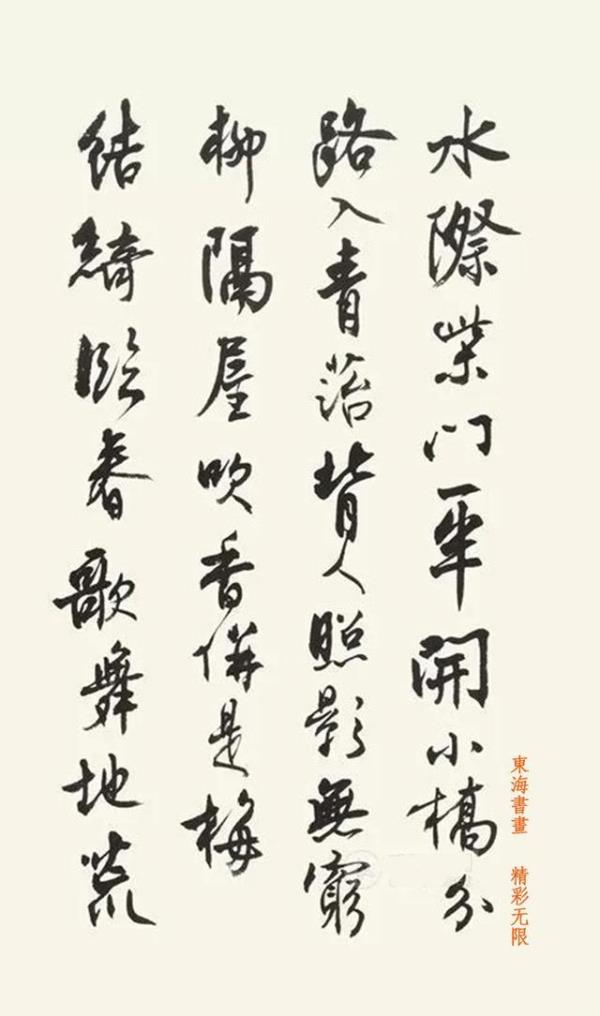 水際柴門一半開小橋分
路入青菭背人照影無窮
柳隔屋吹香併是梅
結綺臨春歌舞地荒
東海書畫 精彩无限